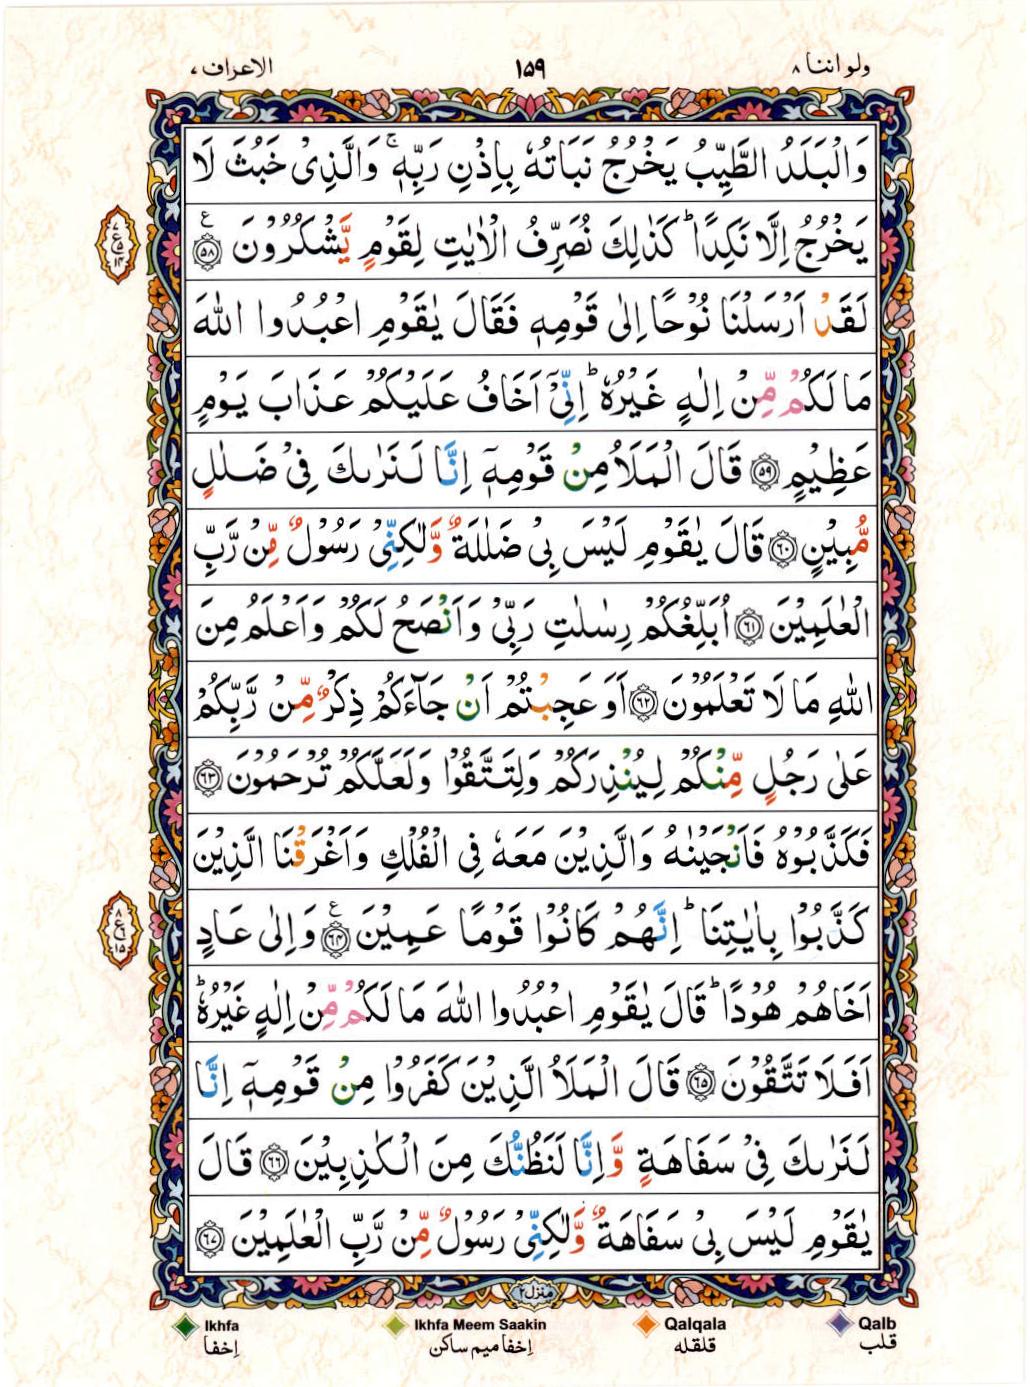 ولو اننا ۸
۱۵۹
الاعراف ۷
وَالْبَلَدُ الطَّيِّبُ يَخْرُجُ نَبَاتُهٗ بِاِذْنِ رَبِّهٖ ۚ وَالَّذِیْ خَبُثَ لَا
يَخْرُجُ اِلَّا نَكِدًا ؕ كَذٰلِكَ نُصَرِّفُ الْاٰيٰتِ لِقَوْمٍ يَّشْكُرُوْنَ ﴿۵۸﴾ ع
لَقَدْ اَرْسَلْنَا نُوْحًا اِلٰى قَوْمِهٖ فَقَالَ يٰقَوْمِ اعْبُدُوا اللّٰهَ
مَا لَكُمْ مِّنْ اِلٰهٍ غَيْرُهٗ ؕ اِنِّیْۤ اَخَافُ عَلَيْكُمْ عَذَابَ يَوْمٍ
عَظِيْمٍ ﴿۵۹﴾ قَالَ الْمَلَاُ مِنْ قَوْمِهٖۤ اِنَّا لَنَرٰىكَ فِیْ ضَلٰلٍ
مُّبِيْنٍ ﴿۶۰﴾ قَالَ يٰقَوْمِ لَيْسَ بِیْ ضَلٰلَةٌ وَّلٰكِنِّیْ رَسُوْلٌ مِّنْ رَّبِّ
الْعٰلَمِيْنَ ﴿۶۱﴾ اُبَلِّغُكُمْ رِسٰلٰتِ رَبِّیْ وَاَنْصَحُ لَكُمْ وَاَعْلَمُ مِنَ
اللّٰهِ مَا لَا تَعْلَمُوْنَ ﴿۶۲﴾ اَوَعَجِبْتُمْ اَنْ جَآءَكُمْ ذِكْرٌ مِّنْ رَّبِّكُمْ
عَلٰى رَجُلٍ مِّنْكُمْ لِيُنْذِرَكُمْ وَلِتَتَّقُوْا وَلَعَلَّكُمْ تُرْحَمُوْنَ ﴿۶۳﴾
فَكَذَّبُوْهُ فَاَنْجَيْنٰهُ وَالَّذِيْنَ مَعَهٗ فِی الْفُلْكِ وَاَغْرَقْنَا الَّذِيْنَ
كَذَّبُوْا بِاٰيٰتِنَا ؕ اِنَّهُمْ كَانُوْا قَوْمًا عَمِيْنَ ﴿۶۴﴾ ع وَاِلٰى عَادٍ
اَخَاهُمْ هُوْدًا ؕ قَالَ يٰقَوْمِ اعْبُدُوا اللّٰهَ مَا لَكُمْ مِّنْ اِلٰهٍ غَيْرُهٗ ؕ
اَفَلَا تَتَّقُوْنَ ﴿۶۵﴾ قَالَ الْمَلَاُ الَّذِيْنَ كَفَرُوْا مِنْ قَوْمِهٖۤ اِنَّا
لَنَرٰىكَ فِیْ سَفَاهَةٍ وَّاِنَّا لَنَظُنُّكَ مِنَ الْكٰذِبِيْنَ ﴿۶۶﴾ قَالَ
يٰقَوْمِ لَيْسَ بِیْ سَفَاهَةٌ وَّلٰكِنِّیْ رَسُوْلٌ مِّنْ رَّبِّ الْعٰلَمِيْنَ ﴿۶۷﴾
منزل ۲
Ikhfa Ikhfa Meem Saakin Qalqala Qalb
قلب قلقله إخفا ميم ساكن إخفا